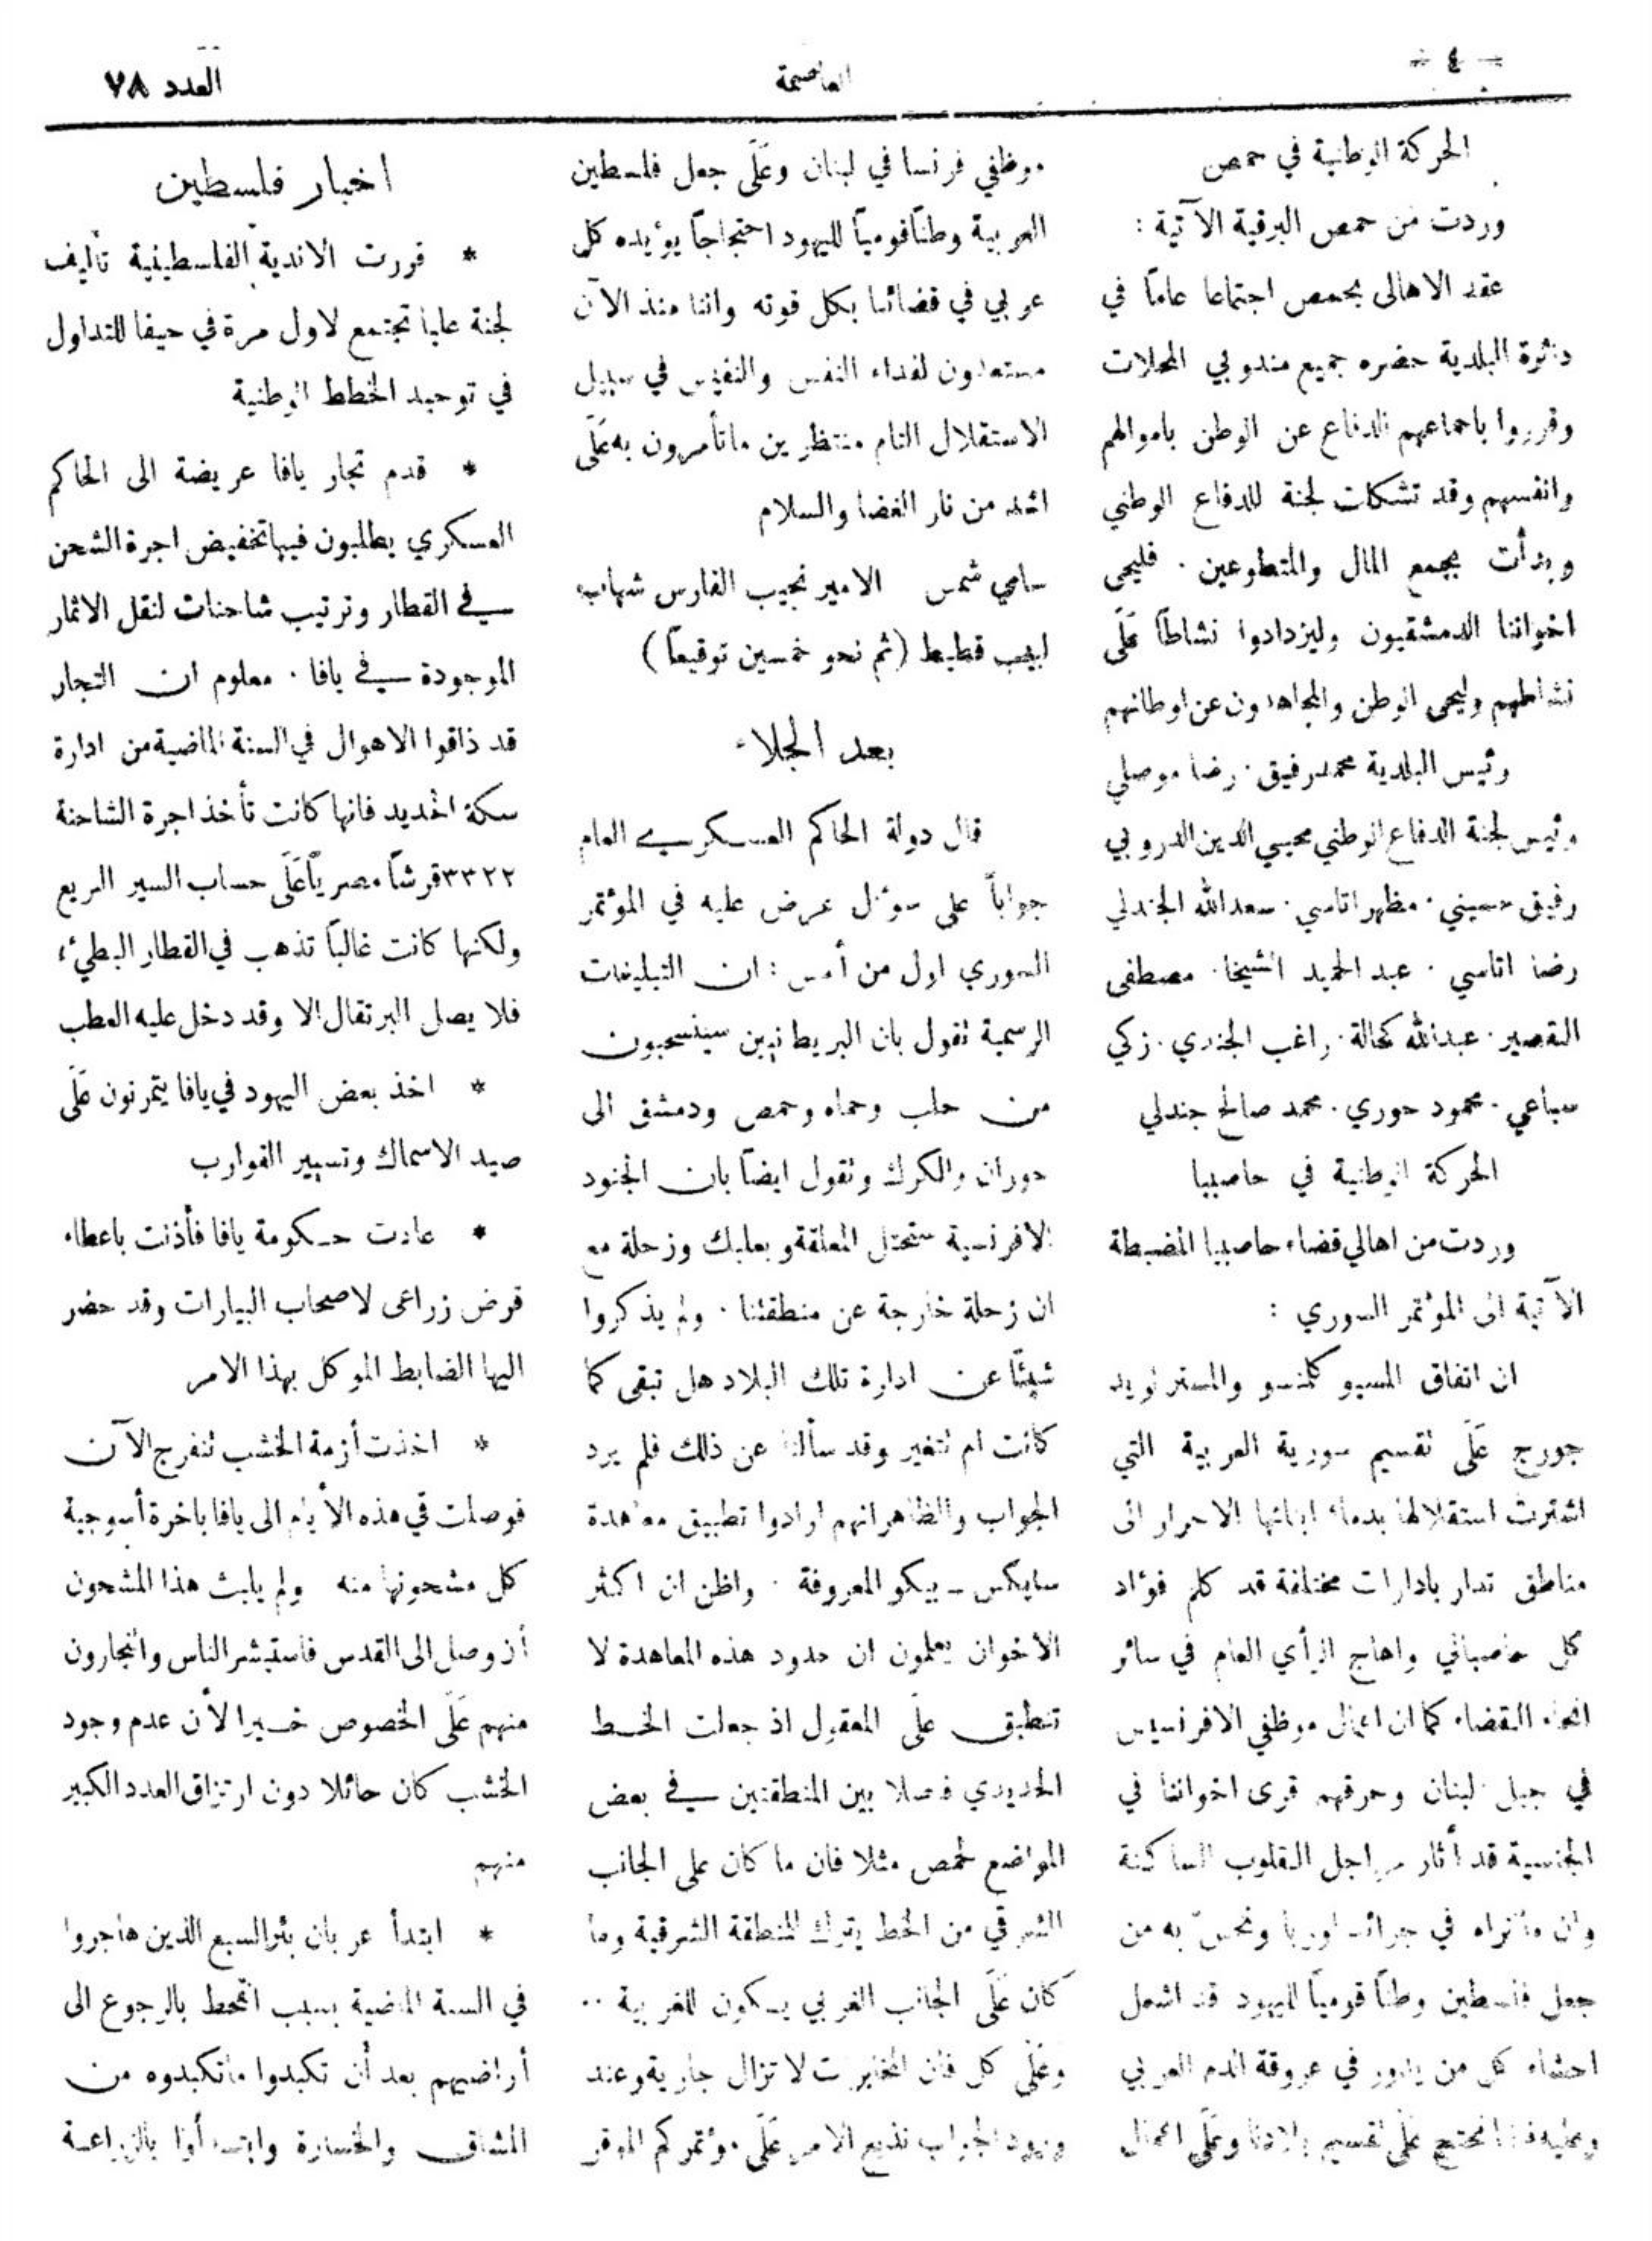 - ٤ -
العاصمة
العدد ٧٨
الحركة الوطنية في حمص
وردت من حمص البرقية الآتية :
عقد الاهالى بحمص اجتماعا عامّا في
دائرة البلدية حضره جميع مندوبي المحلات
وقرروا باجماعهم الدفاع عن الوطن باموالهم
وانفسهم وقد تشكلت لجنة للدفاع الوطني
وبدأت بجمع المال والمتطوعين . فليحى
اخواننا الدمشقيون وليزدادوا نشاطاً عَلَى
نشاطهم وليحى الوطن والمجاهدون عن اوطانهم
رئيس البلدية محمد رفيق . رضا موصلي
رئيس لجنة الدفاع الوطني محيي الدين الدروبي
رفيق حسيني . مظهر اتاسي . سعدالله الجندلي
رضا اتاسي . عبد الحميد الشيخا . مصطفى
القصير . عبدالله كحالة . راغب الجندي . زكي
سباعي . محمود حوري . محمد صالح جندلي
الحركة الوطنية في حاصبيا
وردت من اهالي قضاء حاصبيا المضبطة
الآتية الى المؤتمر السوري :
ان اتفاق المسيو كلمنسو والمستر لويد
جورج عَلَى تقسيم سورية العربية التي
اشترت استقلالها بدماء ابنائها الاحرار الى
مناطق تدار بادارات مختلفة قد كلم فؤاد
كل حاصباني واهاج الرأي العام في سائر
انحاء القضاء كما ان اعمال موظفي الافرنسيس
في جبل لبنان وحرقهم قرى اخواننا في
الجنسية قد أثار مراجل القلوب الساكنة
وان ما نراه في جرائد اوربا ونحسّ به من
جعل فلسطين وطنًا قوميًا لليهود قد اشعل
احشاء كل من يدور في عروقة الدم العربي
وعليه فاننا نحتج عَلَى تقسيم بلادنا وعَلَى اعمال
موظفي فرنسا في لبنان وعَلَى جعل فلسطين
العربية وطنًا قوميًا لليهود احتجاجاً يؤيده كل
عربي في قضائنا بكل قوته واننا منذ الآن
مستعدون لفداء النفس والنفيس في سبيل
الاستقلال التام منتظرين ما تأمرون به عَلَى
اشد من نار الغضا والسلام
سامي شمس الامير نجيب الفارس شهاب
لبيب قطيط (ثم نحو خمسين توقيعًا)
بعد الجلاء
قال دولة الحاكم العسكري العام
جواباً على سؤال عرض عليه في المؤتمر
السوري اول من أمس : ان التبليغات
الرسمية تقول بان البريطانيين سينسحبون
من حلب وحماه وحمص ودمشق الى
حوران والكرك وتقول ايضاً بان الجنود
الافرنسية ستحتل المعلقة وبعلبك وزحلة مع
ان زحلة خارجة عن منطقتنا . ولم يذكروا
شيئًا عن ادارة تلك البلاد هل تبقى كما
كانت ام تتغير وقد سألنا عن ذلك فلم يرد
الجواب والظاهر انهم ارادوا تطبيق معاهدة
سايكس ـ بيكو المعروفة . واظن ان اكثر
الاخوان يعلمون ان حدود هذه المعاهدة لا
تنطبق علَى المعقول اذ جعلت الخط
الحديدي فاصلا بين المنطقتين في بعض
المواضع لحمص مثلا فان ما كان على الجانب
الشرقي من الخط يترك للمنطقة الشرقية وما
كان عَلَى الجانب الغربي يكون للغربية ..
وعَلَى كل فان المخابرات لا تزال جارية وعند
ورود الجواب نذيع الامر عَلَى مؤتمركم الموقر
اخبار فلسطين
* قررت الاندية الفلسطينية تأليف
لجنة عليا تجتمع لاول مرة في حيفا للتداول
في توحيد الخطط الوطنية
* قدم تجار يافا عريضة الى الحاكم
العسكري يطلبون فيها تخفيض اجرة الشحن
في القطار وترتيب شاحنات لنقل الاثمار
الموجودة في يافا . معلوم ان التجار
قد ذاقوا الاهوال في السنة الماضية من ادارة
سكة الحديد فانها كانت تأخذ اجرة الشاحنة
٣٣٢٢ قرشًا مصريًا عَلَى حساب السير السريع
ولكنها كانت غالبًا تذهب في القطار البطيء؛
فلا يصل البرتقال الا وقد دخل عليه العطب
* اخذ بعض اليهود في يافا يتمرنون عَلَى
صيد الاسماك وتسيير القوارب
* عادت حكومة يافا فأذنت باعطاء
قرض زراعى لاصحاب البيارات وقد حضر
اليها الضابط الموكل بهذا الامر
* اخذت أزمة الخشب تنفرج الآن
فوصلت في هذه الأيام الى يافا باخرة أسوجية
كل مشحونها منه ولم يلبث هذا المشحون
أن وصل الى القدس فاستبشر الناس والنجارون
منهم عَلَى الخصوص خيرا لأن عدم وجود
الخشب كان حائلا دون ارتزاق العدد الكبير
منهم
* ابتدأ عربان بئر السبع الذين هاجروا
في السنة الماضية بسبب القحط بالرجوع الى
أراضيهم بعد أن تكبدوا ما تكبدوه من
المشاق والخسارة وابتدأوا بالزراعة